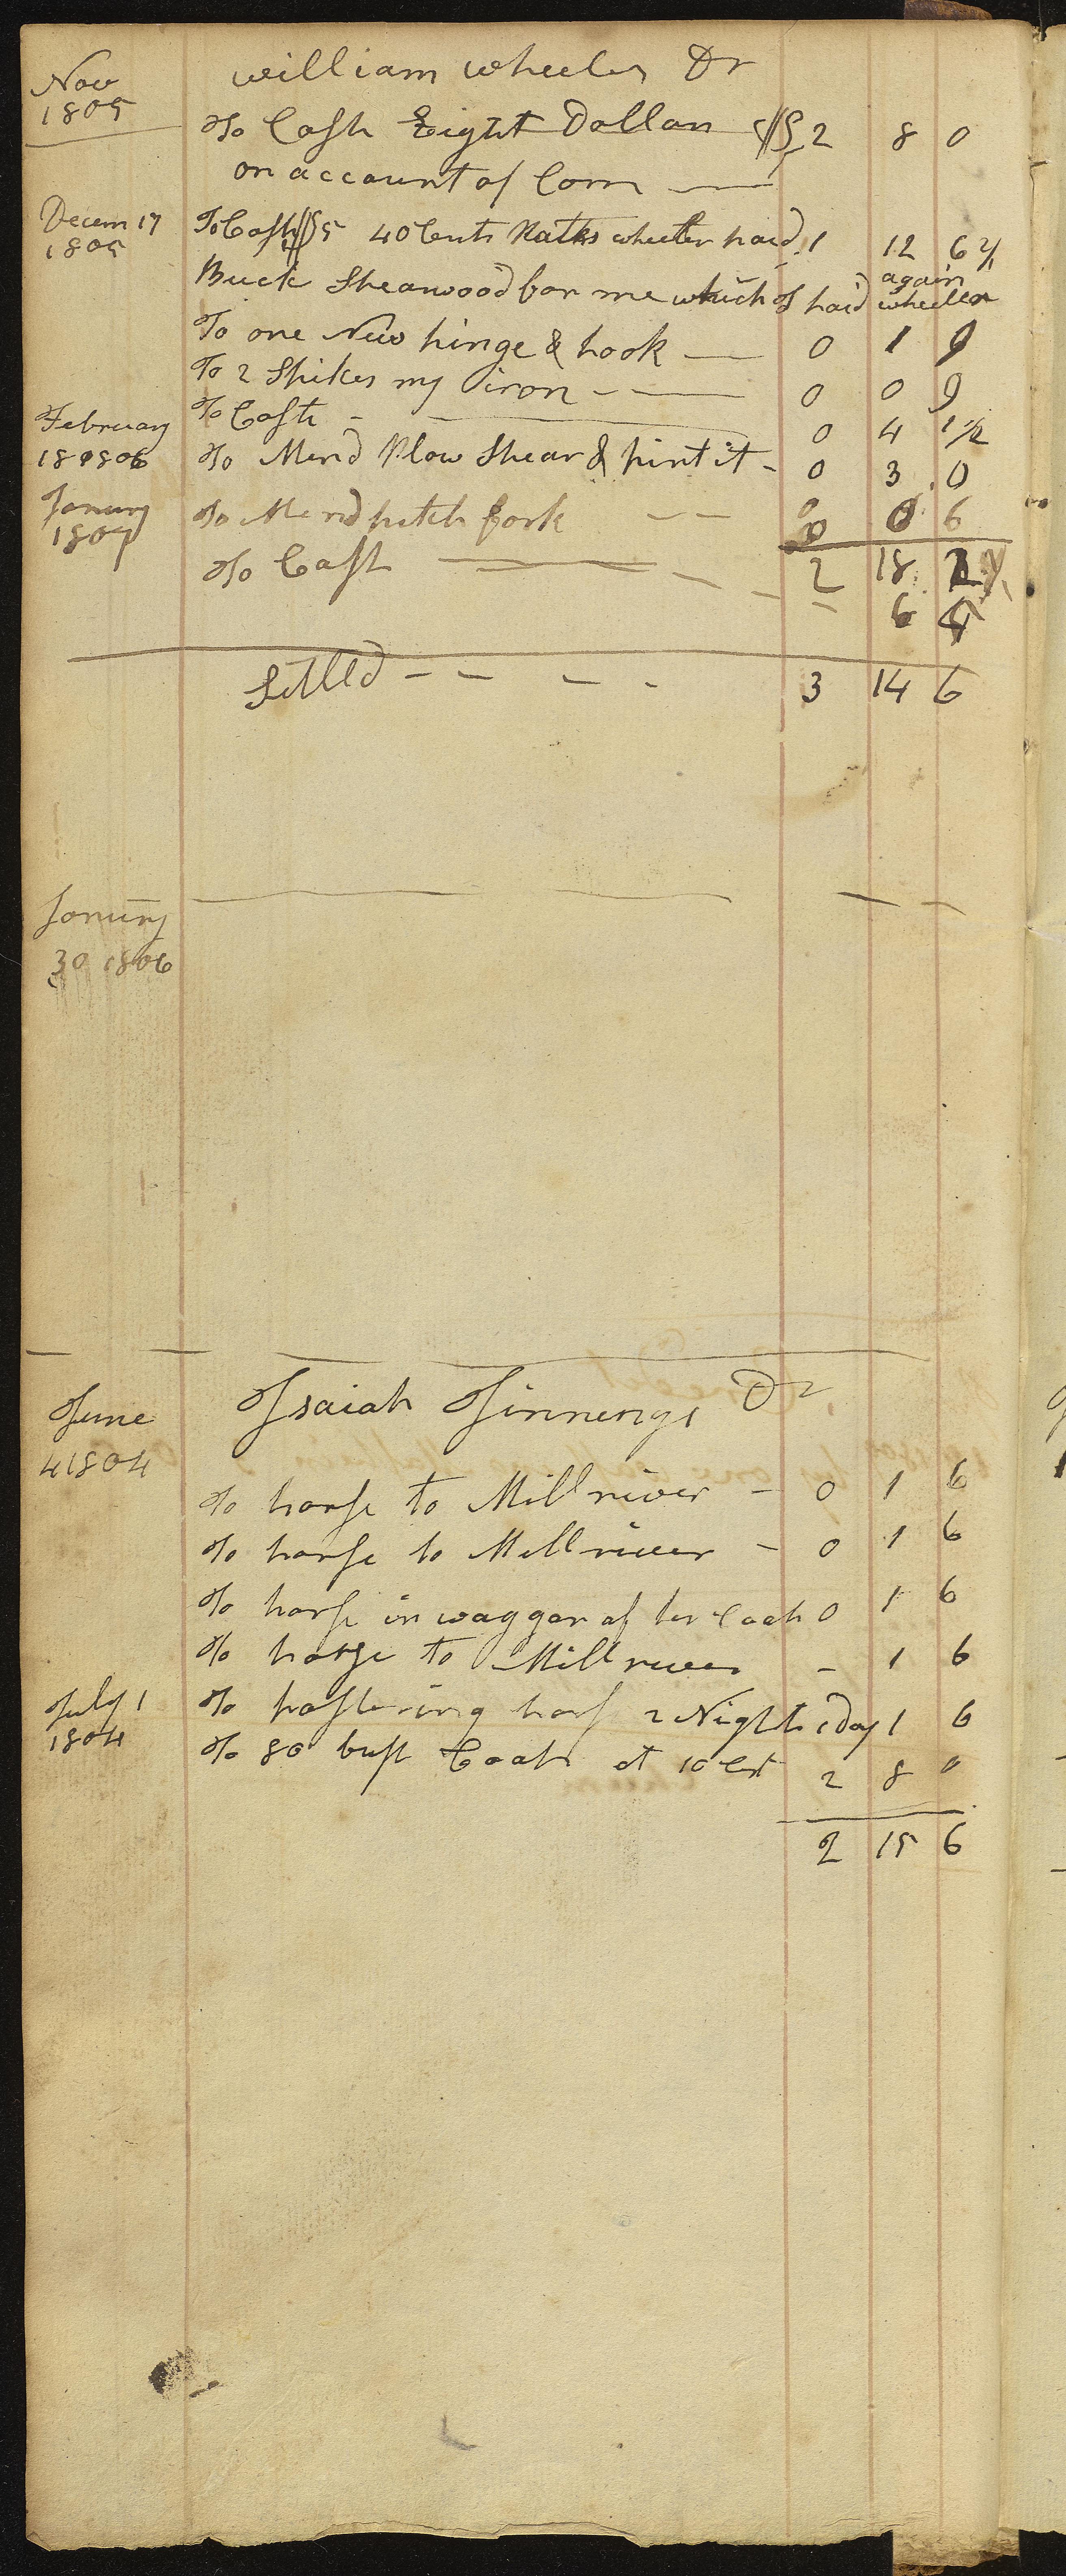 William Wheeler Dr
Nov
1805
To Cash Eight Dollars $8, 2 8 0
on account of Corn
Decem 17
1805
To Cash $5 40 Cents Nathn wheeler paid 1 12 6
Buck Shearwood for me which I paid wheeler
again
To one New hinge & hook 0 1 9
To 2 Spikes my iron 0 0 9
To Cash 0 4 1 1/2
February
1806
To Mend Plow Shear & pint it 0 3 0
Janury
1807
To Mend pitch fork 0 0 6
2 18
To Cash
6
Settled 3 14 6
Janury
30 1806
Isaiah Jinnengs Dr
June
4 1804
To horse to Mill river 0 1 6
To horse to Mill river 0 1 6
To horse in waggon af ter Coah 0 1 6
To horse to Mill river 1 6
July 1
1804
To pastering hors 2 Nights 1 Day 1 6
To 80 bush Coah at 10 Cet 2 8 0
2 15 6